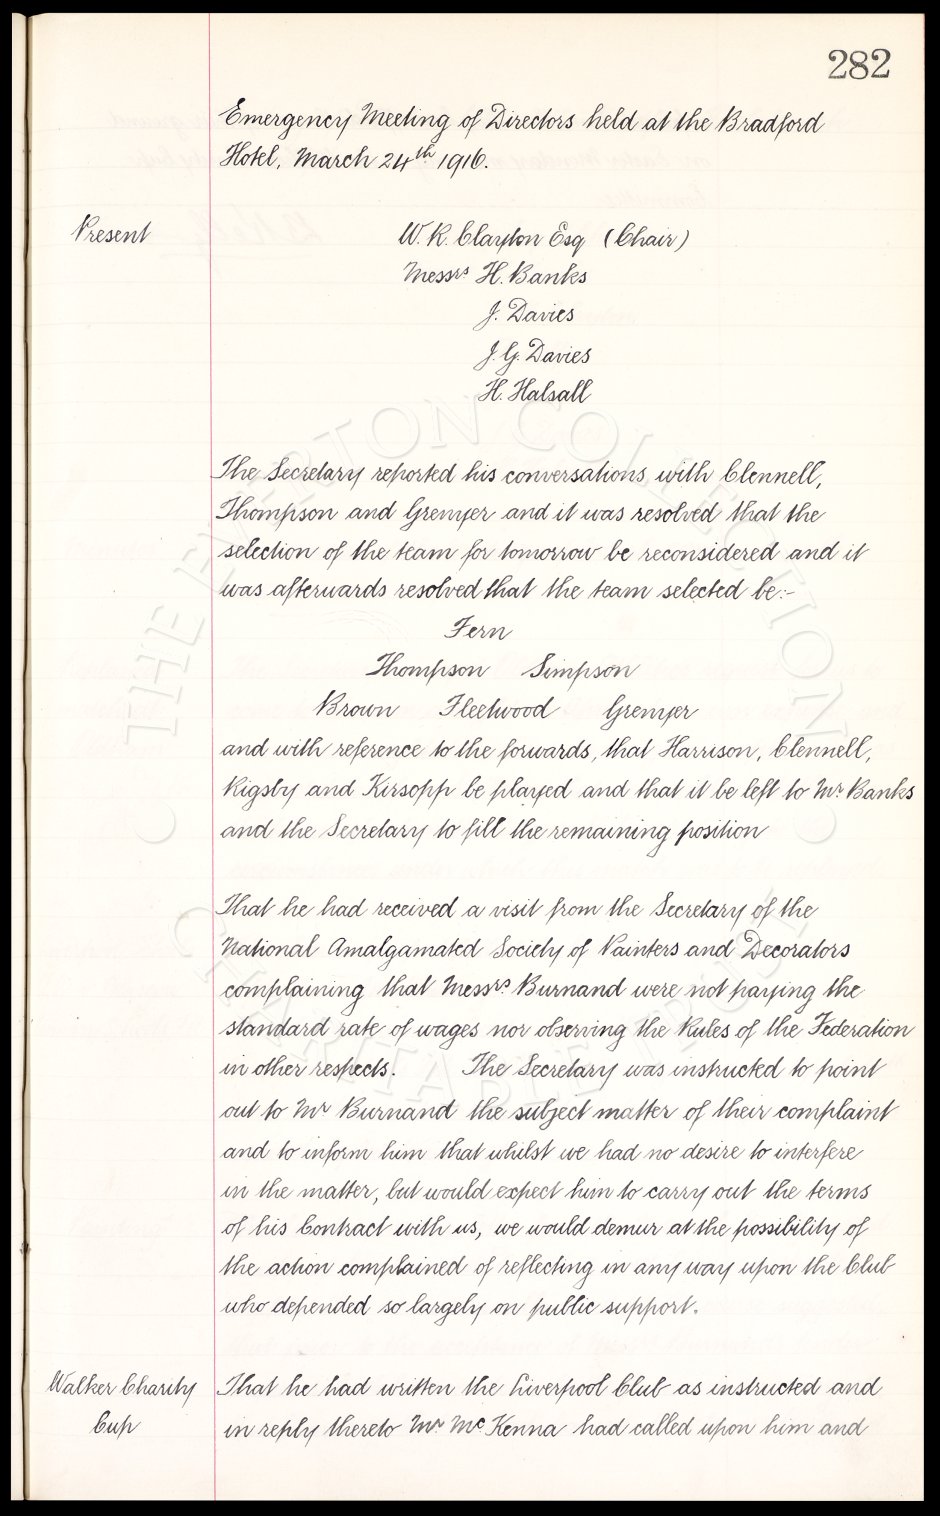 282
Emergency Meeting of Directors held at the Bradford
Hotel, March 24th 1916.
Present
W. R. Clayton Esq (Chair)
Messrs H. Banks
J. Davies
J. G. Davies
H. Halsall
The Secretary reported his conversations with Clennell,
Thompson and Grenyer and it was resolved that the
selection of the team for tomorrow be reconsidered and it
was afterwards resolved that the team selected be:-
Fern
Thompson Simpson
Brown Fleetwood Grenyer
and with reference to the forwards, that Harrison, Clennell,
Rigsby and Kirsopp be played and that it be left to Mr Banks
and the Secretary to fill the remaining position
That he had received a visit from the Secretary of the
National Amalgamated Society of Painters and Decorators
complaining that Messrs. Burnand were not paying the
standard rate of wages nor observing the Rules of the Federation
in other respects. The Secretary was instructed to point
out to Mr Burnand the subject matter of their complaint
and to inform him that whilst we had no desire to interfere
in the matter, but would expect him to carry out the terms
of his Contract with us, we would demur at the possibility of
the action complained of reflecting in any way upon the Club
who depended so largely on public support.
Walker Charity
Cup
That he had written the Liverpool Club as instructed and
in reply thereto Mr McKenna had called upon him and
THE EVERTON COLLECTION
CHARITABLE TRUST